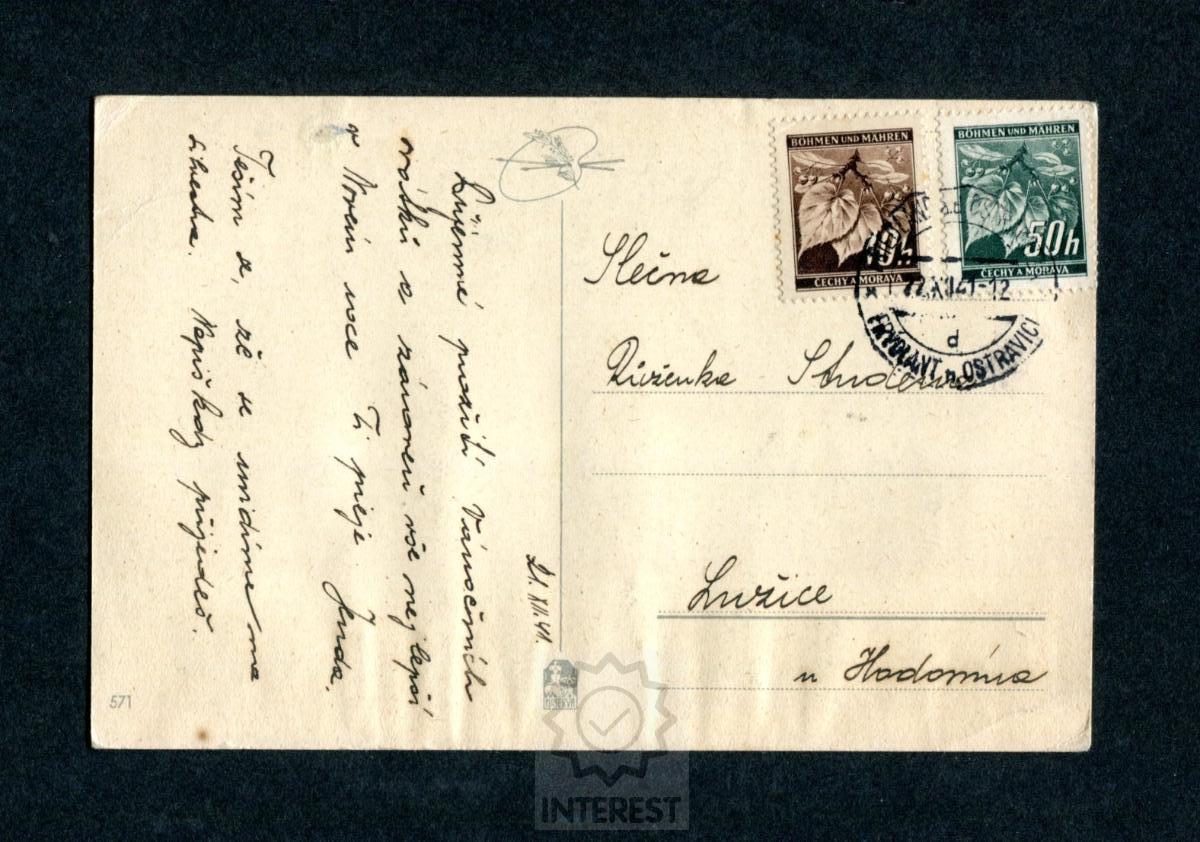 21.XII.41.
Příjemné prožití Vánočních
svátků a zároveň vše nejlepší
v Novém roce Ti přeje
Jenda.
Těším se, že se uvidíme na
Napiš kdy přijedeš.
571
Slečna
Růženka
Lužice
u Hodonína
BÖHMEN UND MÄHREN
ČECHY A MORAVA
BÖHMEN UND MÄHREN
50h
ČECHY A MORAVA
22.XII.41-12
d
FRYDLANT n. OSTRAVICI
INTEREST